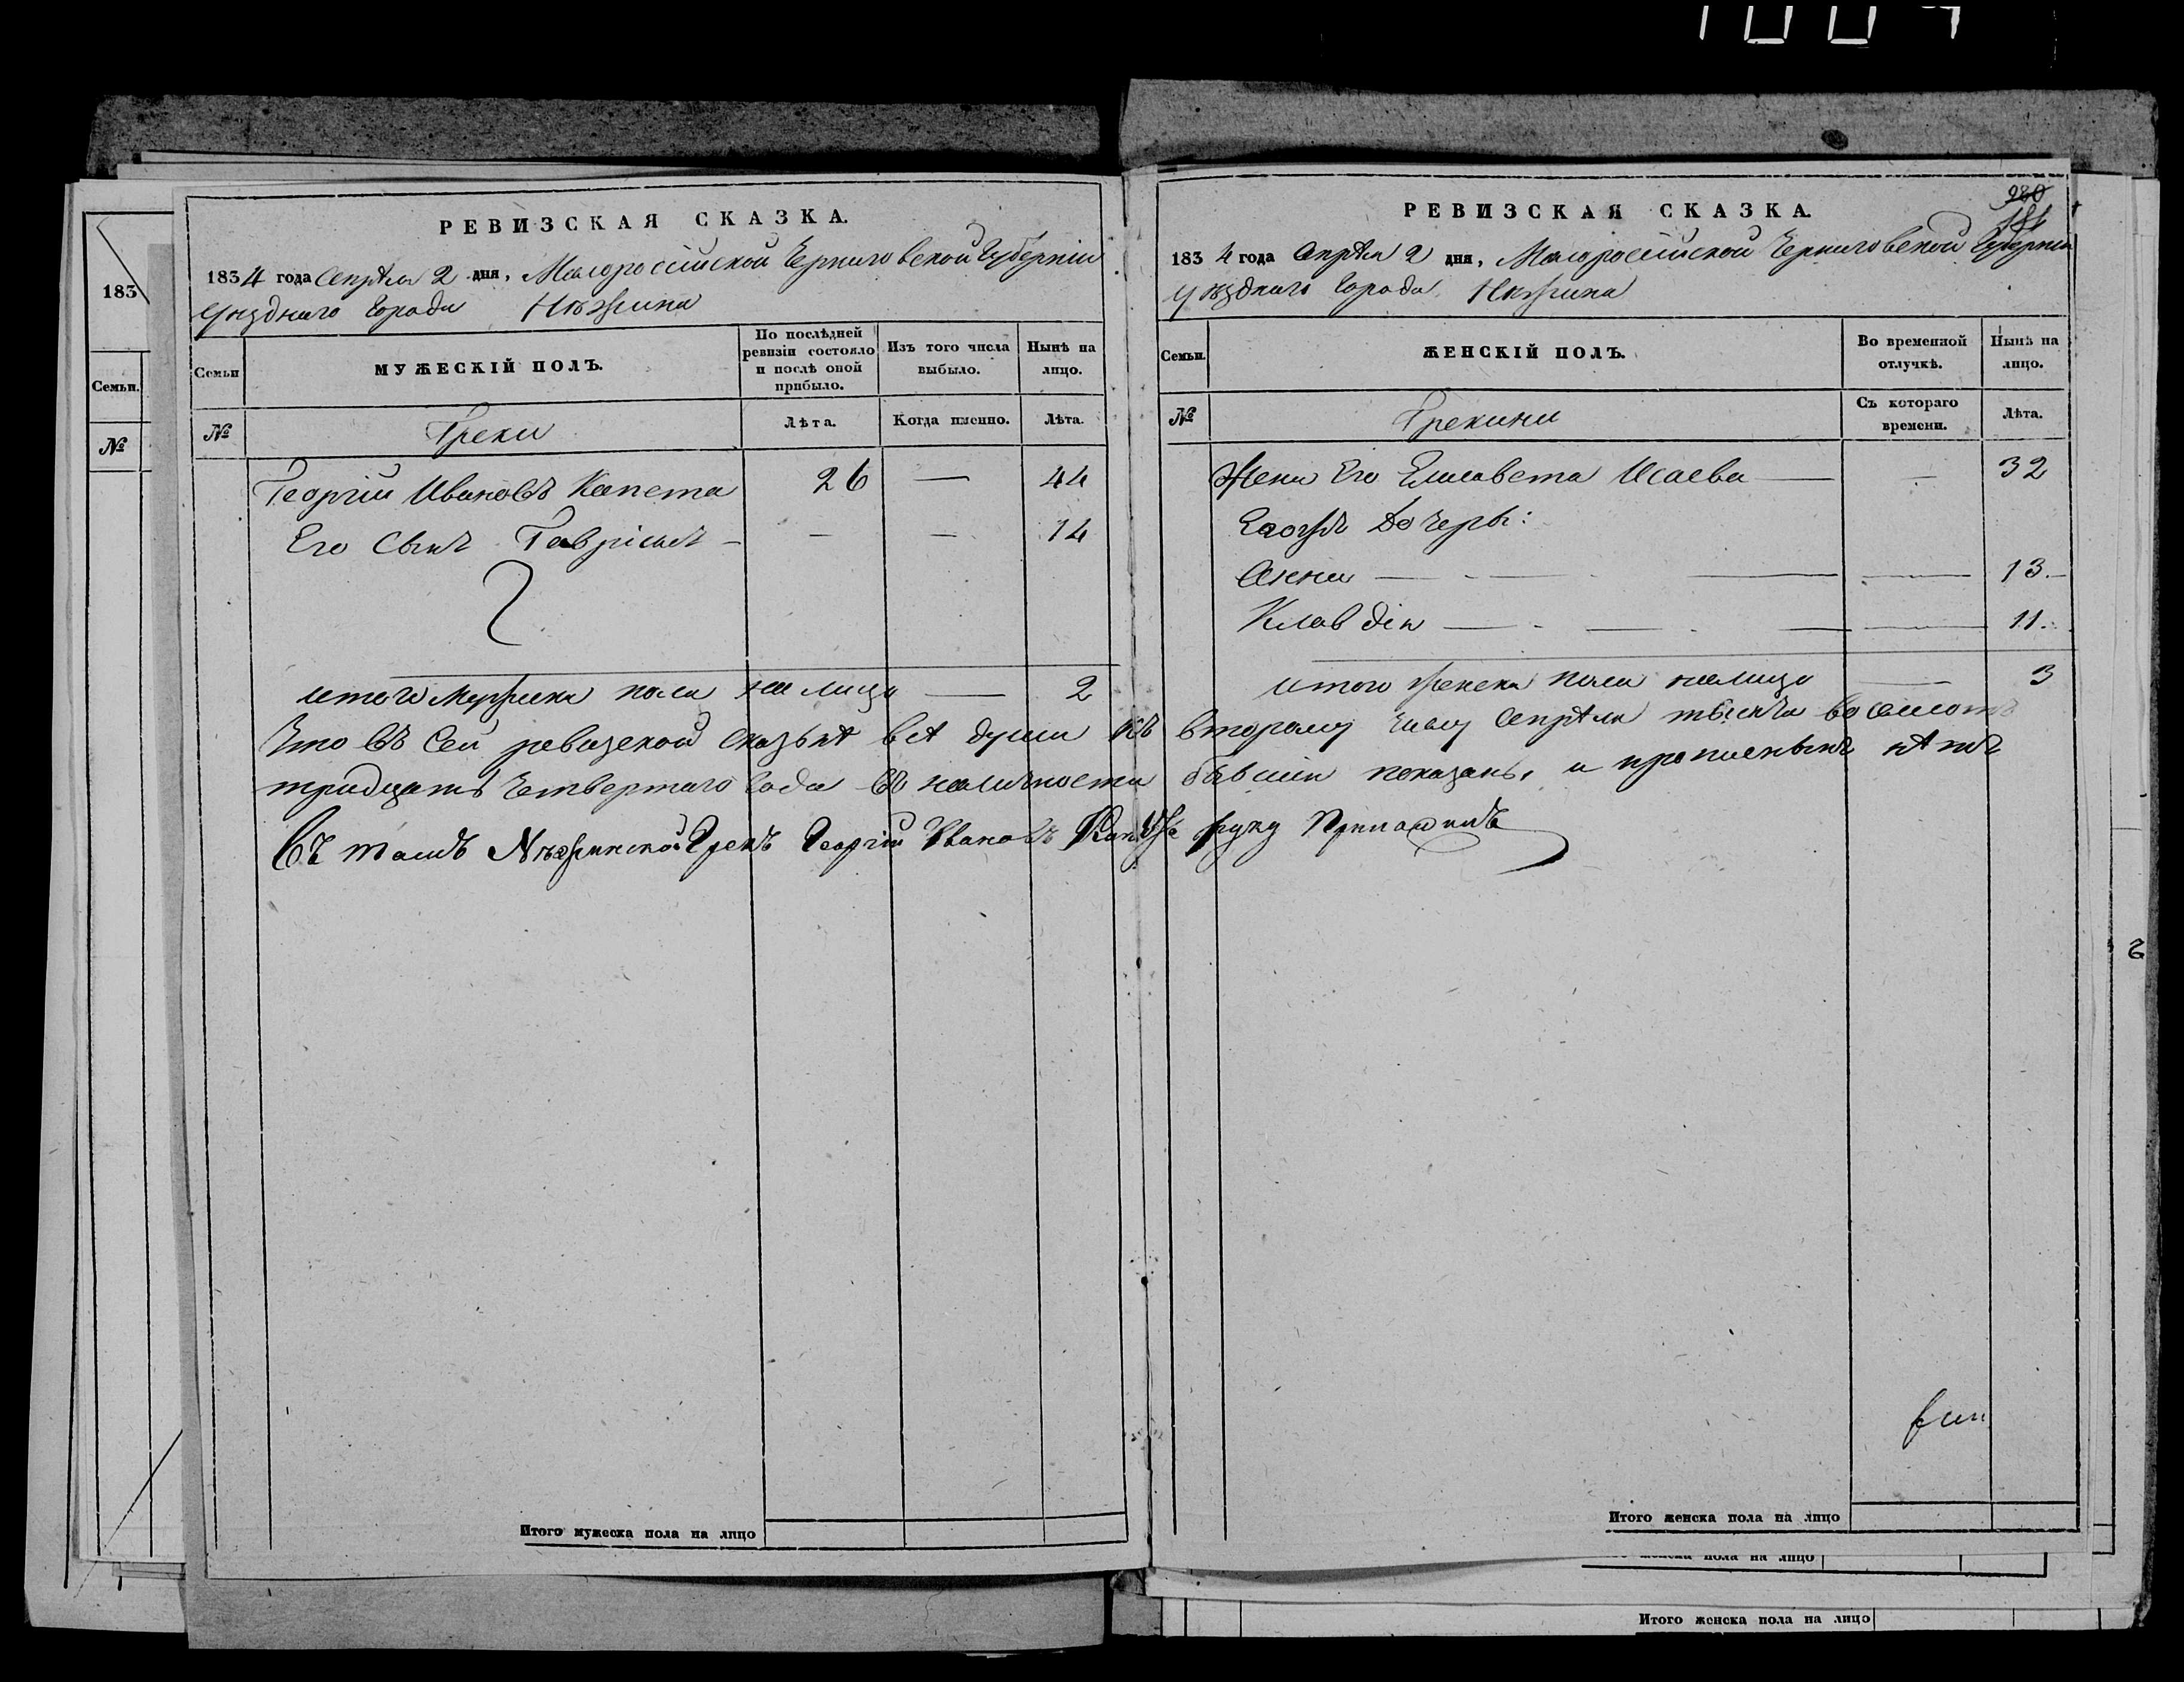 РЕВИЗСКАЯ СКАЗКА.
1834 года Апрѣля 2 дня, Малороссійской Черниговской Губерніи
Уѣзднаго Города Нѣжина
Семьи
МУЖЕСКІЙ ПОЛЪ.
По послѣдней ревизіи состояло и послѣ оной прибыло.
Изъ того числа выбыло.
Нынѣ на лицо.
№
Греки
Лѣта.
Когда именно.
Лѣта.
Георгій Ивановъ Капета 26 — 44
Его Сынъ Гавріилъ — — — 14
итого Мужеска пола на лицо — 2
РЕВИЗСКАЯ СКАЗКА.
280
1834 года Апрѣля 2 дня, Малороссійской Черниговской Губерніи
Уѣзднаго Города Нѣжина
Семьи.
ЖЕНСКІЙ ПОЛЪ.
Во временной отлучкѣ.
Нынѣ на лицо.
№
Грекини
Съ котораго времени.
Лѣта.
Жена Его Елисавета Исаева — — 32
Егожъ Дочеры:
Анна — — 13.
Клавдія — — 11.
итого женска пола налицо — 3
Что въ Сей ревизской сказкѣ всѣ души къ второму числу Апрѣля тысяча восемсотъ
тридцать Четвертаго Года въ наличности бывшіи показаны, и прописныхъ нѣтъ
Въ томъ Нѣжинской Грекъ Георгій Ивановъ руку Приложилъ
Итого мужеска пола на лицо
Итого женска пола на лицо
183
Семьи.
№
женска пола на лицо
Итого женска пола на лицо